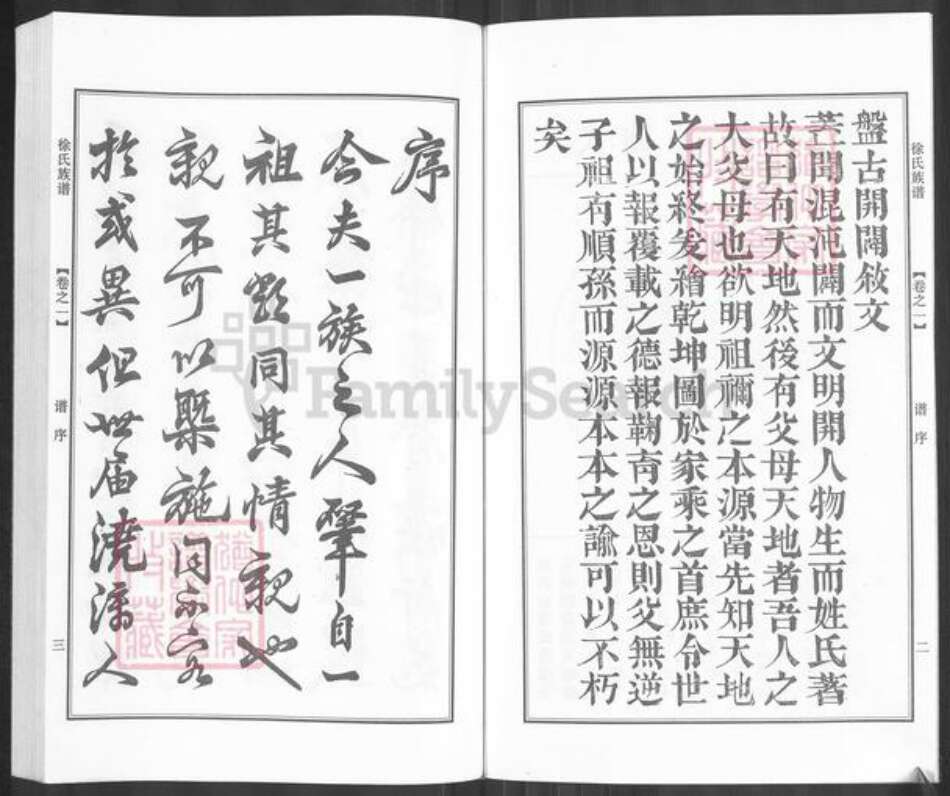 徐氏族谱
【卷之一】
谱序
二
盤古開闢敘文
蓋聞混沌闢而文明開人物生而姓氏著
故曰有天地然後有父母天地者吾人之
大父母也欲明祖禰之本源當先知天地
之始終爰繪乾坤圖於家乘之首庶令世
人以報覆載之德報鞠育之恩則父無逆
子祖有順孫而源源本本之諭可以不朽
矣
徐氏族谱
【卷之一】
谱序
三
序
今夫一族之人肇自一
祖其 同其情親也
親不可以槩施同不容
於或異但世届澆漓人
FamilySearch